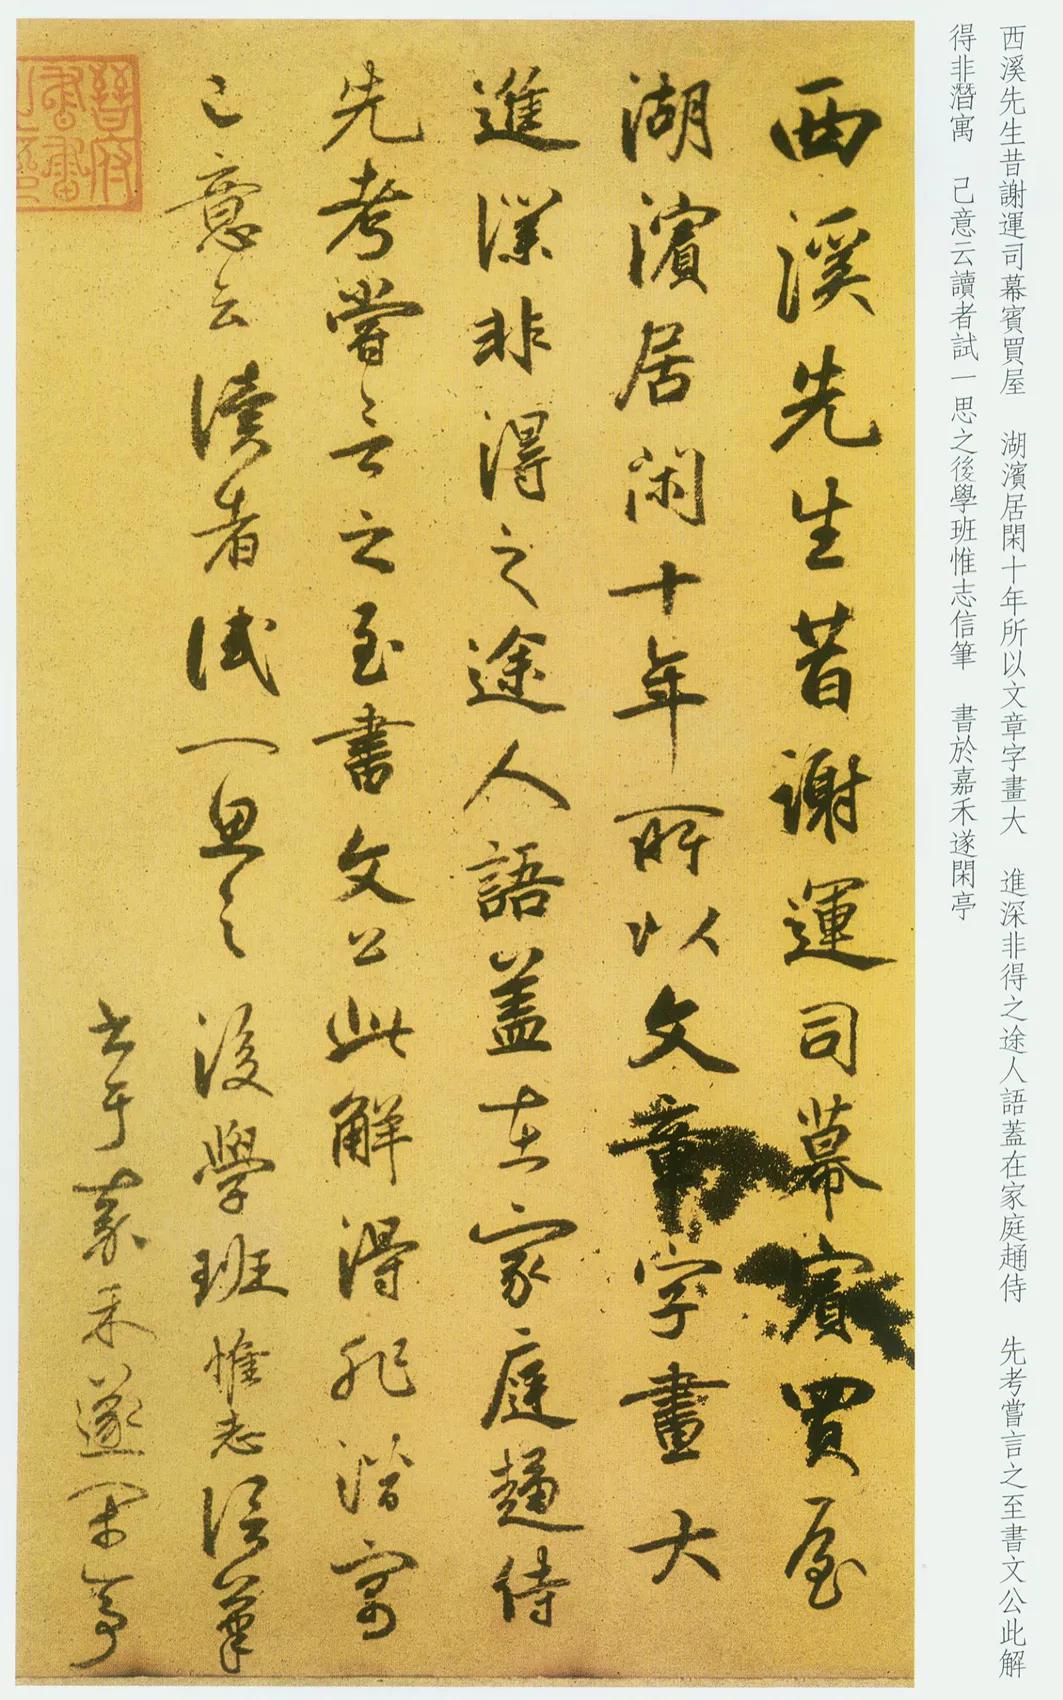 西溪先生昔謝運司幕賓買屋　湖濱居閑十年所以文章字畫大　進深非得之途人語蓋在家庭趨侍　先考嘗言之至書文公此解
得非潛寓　己意云讀者試一思之後學班惟志信筆　書於嘉禾遂閑亭
西溪先生昔謝運司幕賓買屋
湖濱居閑十年所以文章字畫大
進深非得之途人語盖在家庭趨侍
先考嘗言之至書文公此解得非潛寓
己意云讀者試一思之　後學班惟志信筆
書于嘉禾遂閑亭
晉府書畫之印